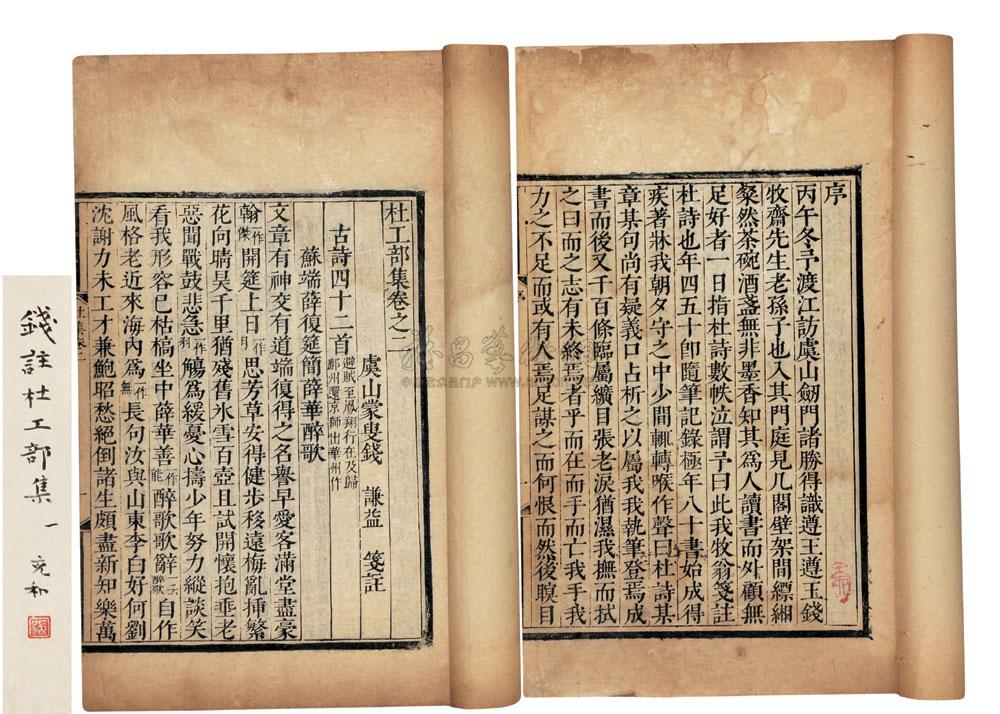 序
丙午冬予渡江訪虞山劒門諸勝得識遵王遵王錢
牧齋先生老孫子也入其門庭見几閣壁架間縹緗
粲然茶碗酒盞無非墨香知其爲人讀書而外顧無
足好者一日指杜詩數帙泣謂予曰此我牧翁箋註
杜詩也年四五十卽隨筆記錄極年八十書始成得
疾著牀我朝夕守之中少間輒轉喉作聲曰杜詩某
章某句尚有疑義口占析之以屬我我執筆登焉成
書而後又千百條臨屬纊目張老淚猶濕我撫而拭
之曰而之志有未終焉者乎而在而手而亡我手我
力之不足而或有人焉足謀之而何恨而然後瞑目
杜工部集卷之二
虞山蒙叟錢 謙益 箋註
古詩四十二首 避賊至鳳翔行在及歸鄜州還京師出華州作
蘇端薛復筵簡薛華醉歌
文章有神交有道端復得之名譽早愛客滿堂盡豪
翰一作傑開筵上日思芳草安得健步移遠梅亂揷繁
花向晴昊千里猶殘舊氷雪百壺且試開懷抱垂老
惡聞戰鼓悲急觴爲緩憂心擣少年努力縱談笑
看我形容已枯槁坐中薛華善一作能醉歌歌辭自作
風格老近來海內爲長句汝與山東李白好何劉
沈謝力未工才兼鮑昭愁絕倒諸生頗盡新知樂萬
錢註杜工部集 一
充和